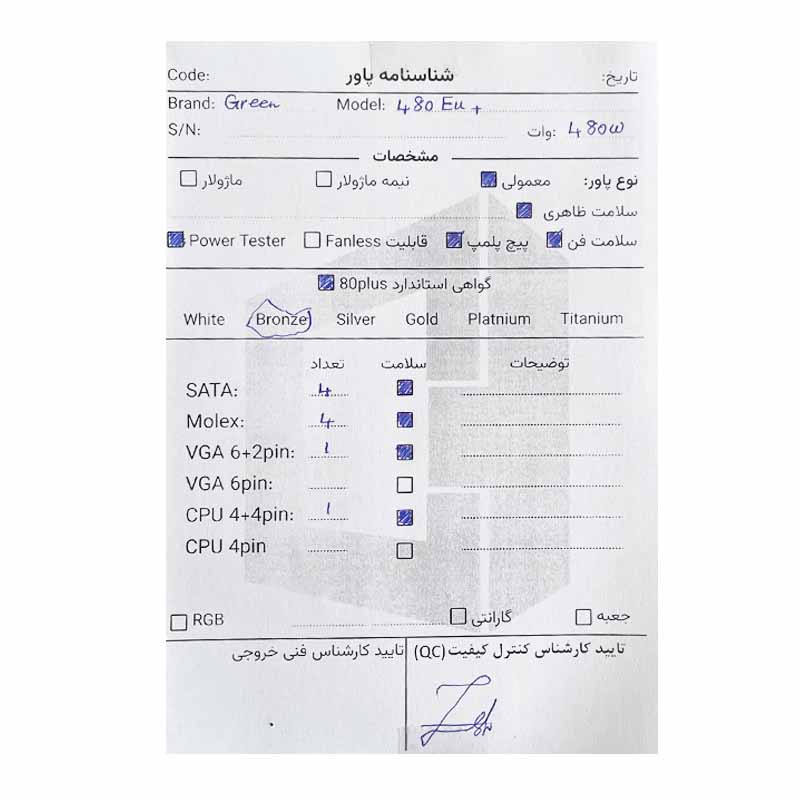 Code: شناسنامه پاور تاریخ:
Brand: Green Model: 480 Eu +
S/N: وات: 480w
مشخصات
نوع پاور: معمولی نیمه ماژولار ماژولار
سلامت ظاهری
سلامت فن پیچ پلمپ قابلیت Fanless Power Tester
گواهی استاندارد 80plus
White Bronze Silver Gold Platnium Titanium
تعداد سلامت توضیحات
SATA: 4
Molex: 4
VGA 6+2pin: 1
VGA 6pin:
CPU 4+4pin: 1
CPU 4pin
RGB گارانتی جعبه
تایید کارشناس کنترل کیفیت (QC) تایید کارشناس فنی خروجی